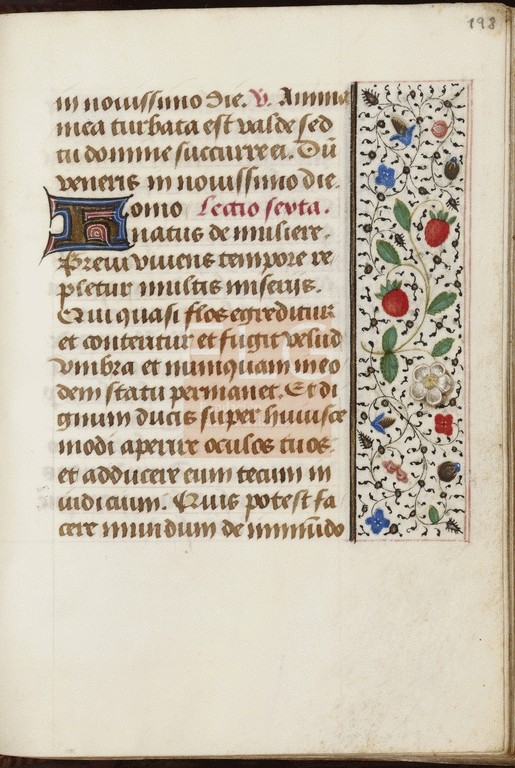 198
in nouissimo die. v. Anima
mea turbata est valde sed
tu domine succurre ei. Dū
veneris in nouissimo die.
Homo Lectio sexta.
natus de muliere.
Breui viuens tempore re
pletur multis miseriis.
Qui quasi flos egreditur
et conteritur et fugit velud
vmbra et nunquam in eo
dem statu permanet. Et di
gnum ducis super huiusce
modi aperire oculos tuos.
et adducere eum tecum in
iudicium. Quis potest fa
cere mundum de inmūdo